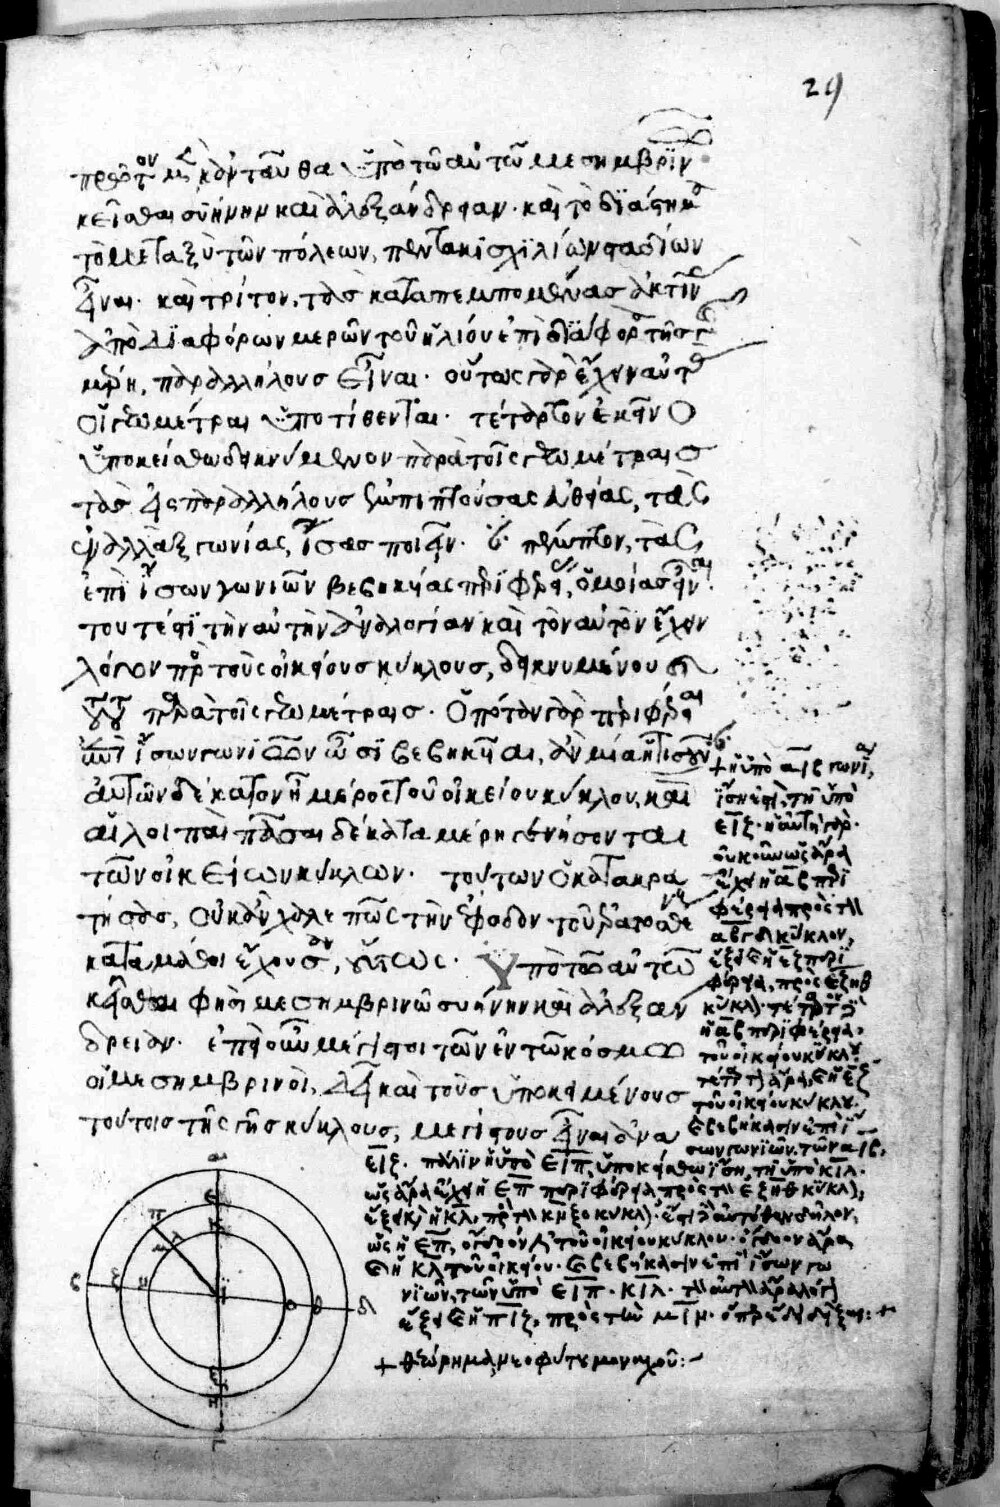 29
πρῶτον μὲν κἀνταῦθα ὑπὸ τῶ αὐτῶ μεσημβρίν
κεῖσθαι συήνην καὶ ἀλεξάνδρειαν. καὶ τὸ διάστημα
τὸ μεταξὺ τῶν πόλεων, πεντακισχιλίων σταδίων
εἶναι. καὶ τρίτον, τὰς καταπεμπομένας ἀκτῖν
ἀπὸ διαφόρων μερῶν τοῦ ἡλίου ἐπὶ διάφορα τῆς γῆς
μέρη, παραλλήλους εἶναι. οὕτως γὰρ ἔχειν αὐτὰς
οἱ γεωμέτραι ὑποτίθενται. τέταρτον ἐκεῖνο
ὑποκείσθω δεικνύμενον παρὰ τοῖς γεωμέτραις
τὰς εἰς παραλλήλους ἐμπιπτούσας εὐθείας, τὰς
ἐναλλὰξ γωνίας, ἴσας ποιεῖν. πέμπτον, τὰς
ἐπὶ ἴσων γωνιῶν βεβηκυίας περιφερείας, ὁμοίας εἶναι.
τουτέστι τὴν αὐτὴν ἀναλογίαν καὶ τὸν αὐτὸν ἔχειν
λόγον πρὸς τοὺς οἰκείους κύκλους, δεικνυμένου
τούτου παρὰ τοῖς γεωμέτραις. ὁπόταν γὰρ περιφέρειαι
ἐπὶ ἴσων γωνιῶν ὦσι βεβηκυῖαι, ἂν μία ἡτισοῦν
αὐτῶν δέκατον ἦ μέρος τοῦ οἰκείου κύκλου, καὶ
αἱ λοιπαὶ πᾶσαι δέκατα μέρη γενήσονται
τῶν οἰκείων κύκλων. τούτων ὁ κατακρα
τήσας, οὐκ ἂν χαλεπῶς τὴν ἔφοδον τοῦ ἐρατοσθένους
καταμάθοι ἔχουσαν, οὕτως. Ὑπὸ τῶ αὐτῶ
κεῖσθαι φησὶ μεσημβρινῶ συήνην καὶ ἀλεξάν
δρειαν. ἐπεὶ οὖν μέγιστοι τῶν ἐν τῶ κόσμω
οἱ μεσημβρινοὶ, δεῖ καὶ τοὺς ὑποκειμένους
τούτοις τῆς γῆς κύκλους, μεγίστους εἶναι ἀνα
+ ἡ ὑπὸ αιβ γωνία,
ἴση ἐστὶ, τῆ ὑπὸ
ειξ. ἡ αὐτὴ γάρ.
οὐκοῦν ὡς ἄρα
ἔχει ἡ αβ περι
φέρεια πρὸς τὸν
αβγδ κύκλον,
ἕξει ἡ εξ περι
φέρεια, πρὸς εξηθ
κύκλον. τέταρτον
ἡ αβ περιφέρεια.
τοῦ οἰκείου κύκλου.
τέταρτον ἄρα, ἡ εξ
τοῦ οἰκείου κύκλου.
βεβήκασιν ἐπὶ ἴ
σων γωνιῶν, τῶν αιβ,
ειξ. πάλιν ἡ ὑπὸ ειπ, ὑποκείσθω ἴση, τῆ ὑπὸ κιλ.
ὡς ἄρα ἔχει ἡ επ περιφέρεια πρὸς τὸν εξηθ κύκλον,
ἕξει κ̀ ἡ κλ, πρὸς τὸν κμξο κύκλον. ἔστι δ' αὐτόθεν δῆλον,
ὡς ἡ επ, ὄγδοόν ἐστι τοῦ οἰκείου κύκλου. ὄγδοον ἄρα
ἡ κλ τοῦ οἰκείου. βεβήκασιν ἐπὶ ἴσων γω
νιῶν, τῶν ὑπὸ ειπ. κιλ. τὸν αὐτὸν ἄρα λόγον
ἕξει ἡ πιξ, πρὸς τὴν μιν. ὅπερ ἔδει δεῖξαι: +
+ θεώρημα νεοφύτου μοναχοῦ: ~
α
ε
κ
π
λ
μ
β
ξ
ν
ι
ο
θ
δ
ξ
η
γ